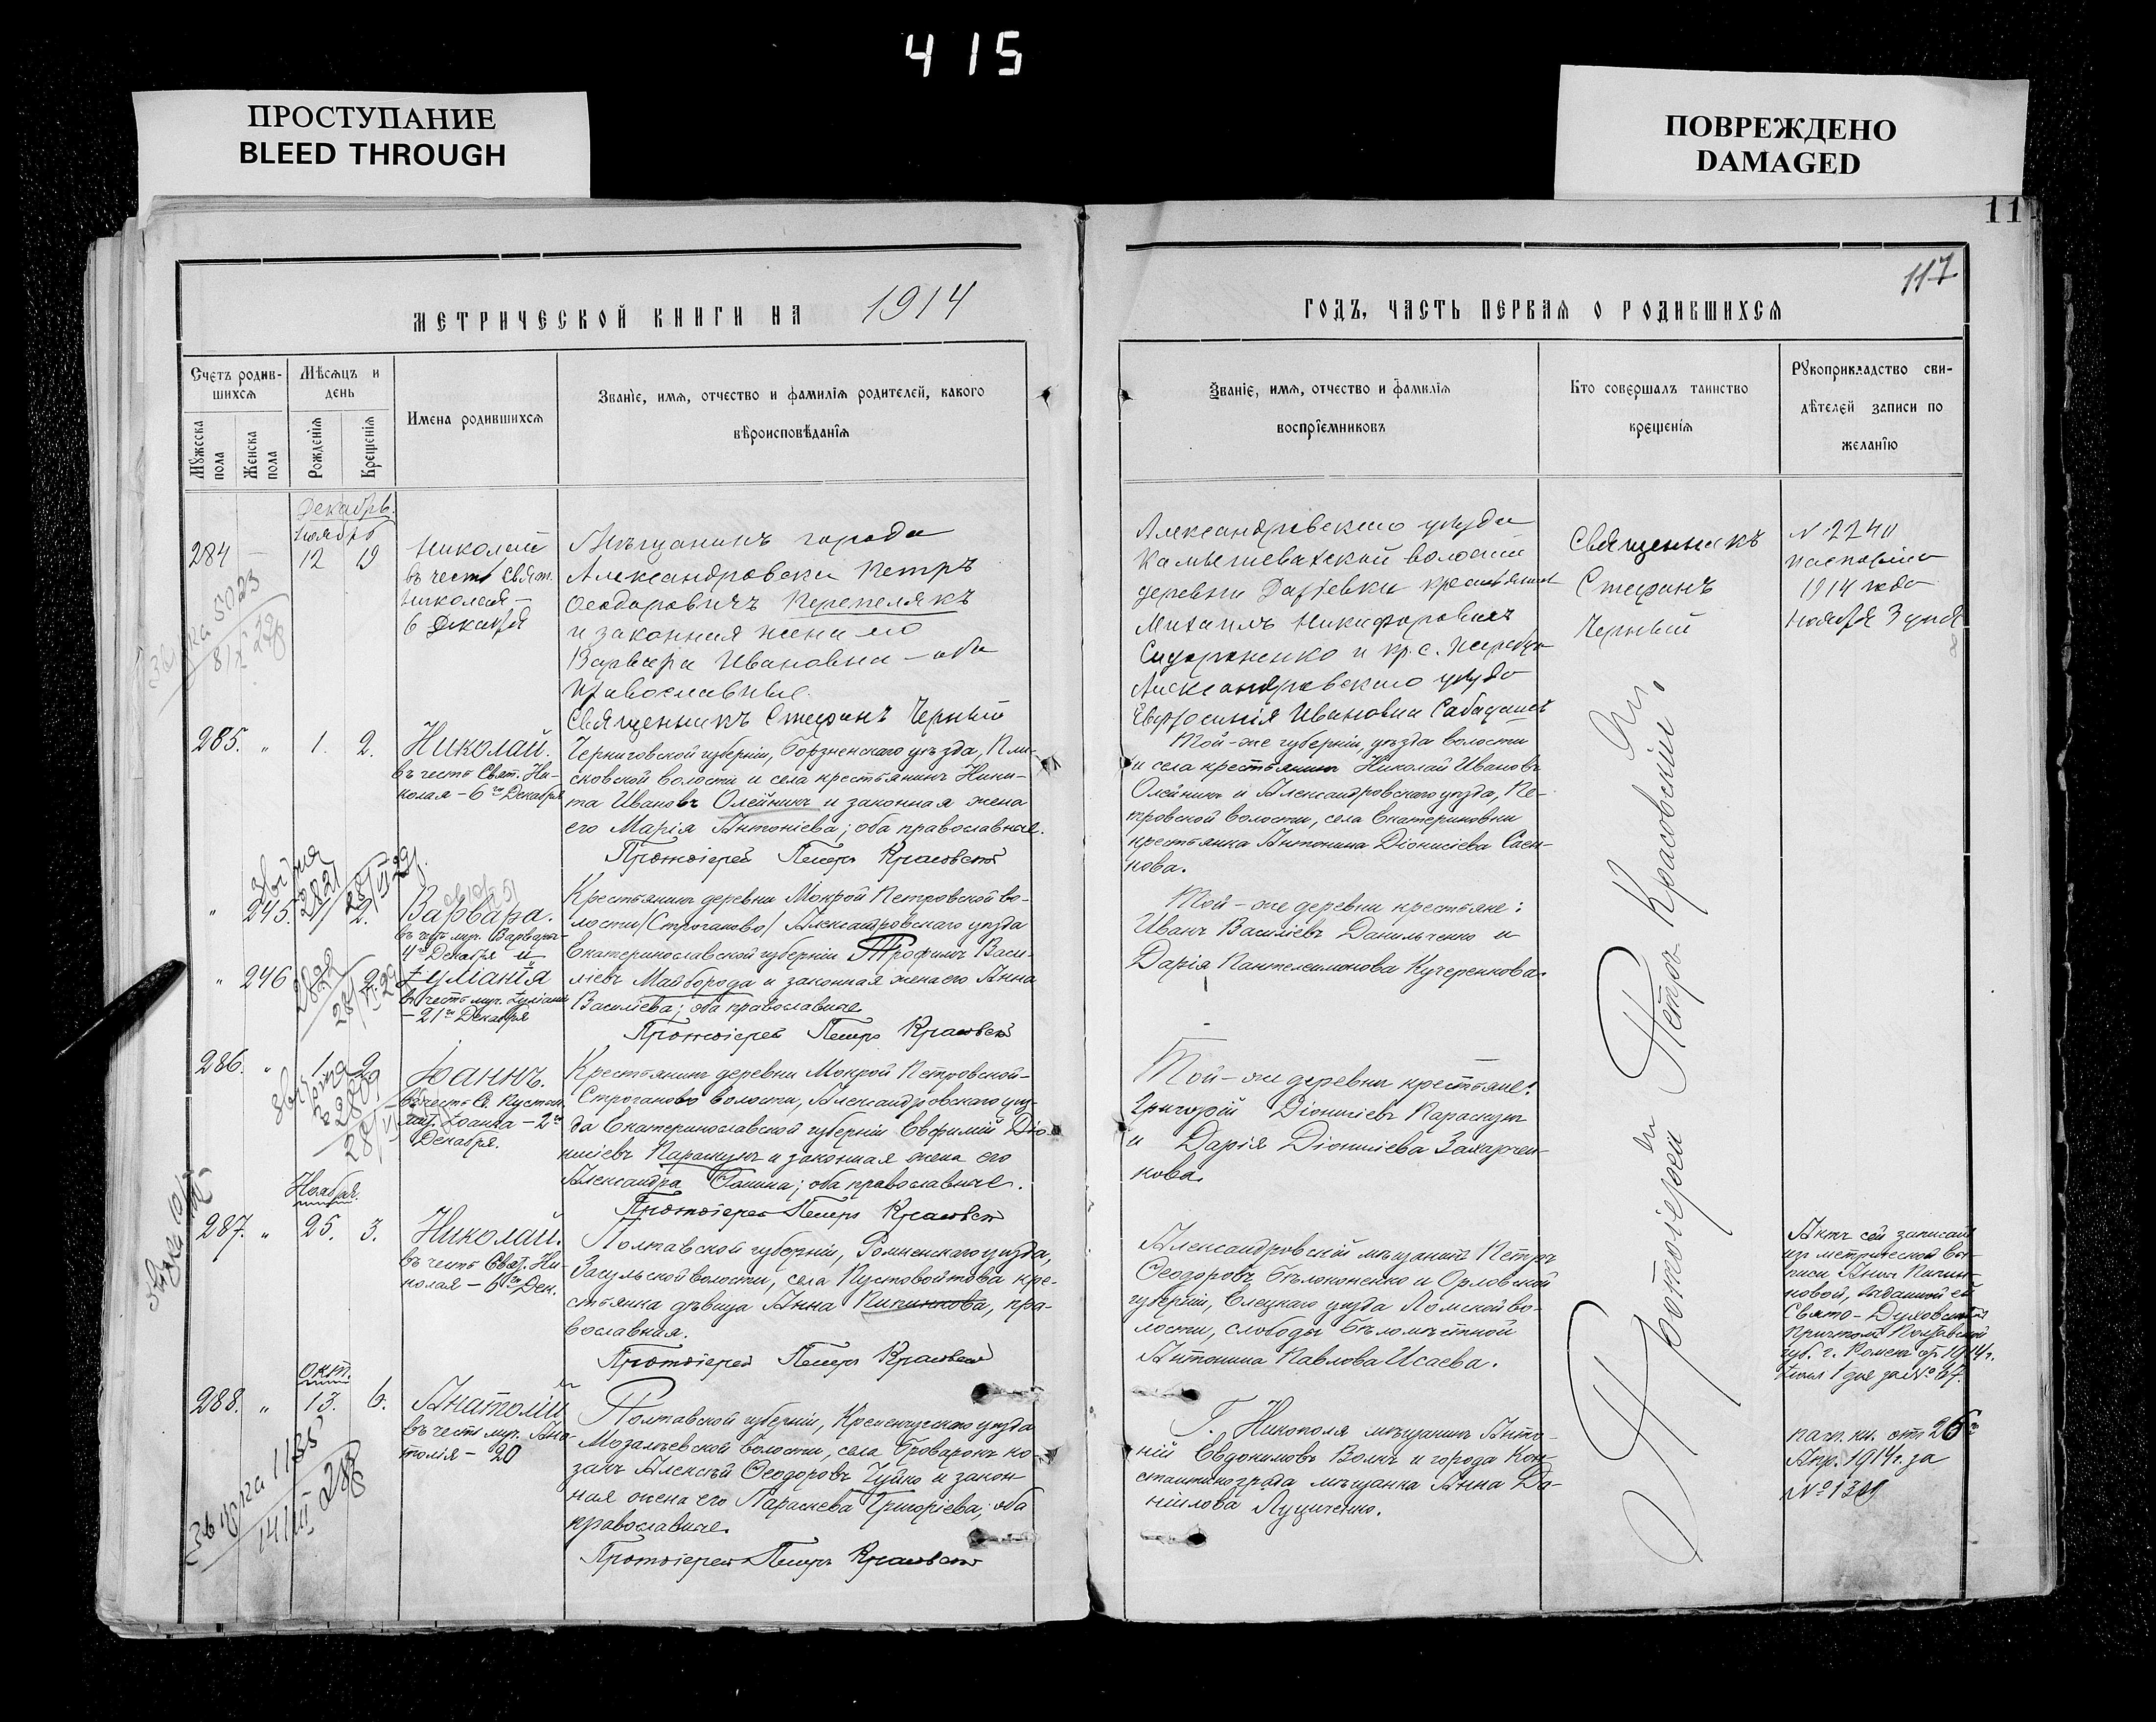 415
ПРОСТУПАНИЕ
BLEED THROUGH
ПОВРЕЖДЕНО
DAMAGED
11
117
МЕТРИЧЕСКОЙ КНИГИ НА 1914
ГОДЪ, ЧАСТЬ ПЕРВАЯ О РОДИВШИХСЯ
Счетъ родив-
шихся
Мѣсяцъ и
день
Мужеска пола
Женска пола
Рожденія
Крещенія
Имена родившихся
Званіе, имя, отчество и фамилія родителей, какого
вѣроисповѣданія
Званіе, имя, отчество и фамилія
воспріемниковъ
Кто совершалъ таинство
крещенія
Рукоприкладство сви-
дѣтелей записи по
желанію
Декабрь.
Ноябрь
284 — 12 19
Николай
въ честь Свят.
Николая —
6 Декабря
Мѣщанинъ города
Александровска Петръ
Ѳеодоровичъ Перепелякъ
и законная жена его
Варвара Ивановна — оба
православные.
Священникъ Стефанъ Черный
Александровскаго уѣзда
Камышевахской волости
деревни
Михаилъ Никифоровичъ
Сидоренко и кр. с.
Александровскаго уѣзда
Евфросинія Ивановна
Священникъ
Стефанъ
Черный
N 2240
1914 года
Ноября 3 дня
285. " 1. 2.
Николай.
въ честь Свят. Ни-
колая — 6го Декабря
Черниговской губерніи, Борзненскаго уѣзда, Пли-
сковской волости и села крестьянинъ Ники-
та Ивановъ Олейникъ и законная жена
его Марія Антоніева; оба православные.
Протоіерей Петръ Красовскій
Той-же губерніи, уѣзда волости
и села крестьянинъ Николай Ивановъ
Олейникъ и Александровскаго уѣзда, Пе-
тровской волости, села Екатериновки
крестьянка Антонина Діонисіева Саен-
кова.
" 245. 2.
Варвара.
въ честь муч. Варвары
4го Декабря и
" 246 2.
Іуліанія
въ честь муч. Іуліаніи
— 21го Декабря
Крестьянинъ деревни Мокрой Петровской во-
лости (Строганово) Александровскаго уѣзда
Екатеринославской губерніи Трофимъ Васи-
ліевъ Майборода и законная жена его Анна
Василіева; оба православные.
Протоіерей Петръ Красовскій
Той-же деревни крестьяне:
Иванъ Василіевъ Данильченко и
Дарія Пантелеимонова Кучеренкова.
286. " 1. 2.
Іоаннъ.
Декабря.
Крестьянинъ деревни Мокрой Петровской-
Строганово волости, Александровскаго уѣз-
да Екатеринославской губерніи Евфимій Діо-
нисіевъ Параскунъ и законная жена его
Александра Фомина; оба православные.
Протоіерей Петръ Красовскій
Той-же деревни крестьяне:
Григорій Діонисіевъ Параскунъ
и Дарія Діонисіева Захарчен-
кова.
Ноября.
287. " 25. 3.
Николай.
въ честь Свят. Ни-
колая — 6го Дек.
Полтавской губерніи, Роменскаго уѣзда,
Засульской волости, села Пустовойтова кре-
стьянка дѣвица Анна Пипинкова, пра-
вославная.
Протоіерей Петръ Красовскій
Александровскій мѣщанинъ Петръ
Ѳеодоровъ Бѣлоконенко и Орловской
губерніи, Елецкаго уѣзда Ломской во-
лости, слободы Бѣломѣстной
Антонина Павлова Исаева.
Актъ сей записанъ
изъ метрической вы-
писи Анны Пипин-
ковой, выданной ей
Свято-Духовскимъ
причтомъ Полтавской
губ. г. Ромена
окт.
288. " 13. 6.
Анатолій
въ честь муч. Ана-
толія — 20
Полтавской губерніи, Кременчугскаго уѣзда
волости, села Броварокъ ко-
закъ Алексѣй Ѳеодоровъ Чуйко и закон-
ная жена его Параскева Григоріева; оба
православные.
Протоіерей Петръ Красовскій
Г. Никополя мѣщанинъ Анто-
ній Евдокимовъ Волкъ и города Кон-
стантинограда мѣщанка Анна Да-
ніилова Луциченко.
Протоіерей Петръ Красовскій
пасп. кн. отъ 26го
Апр. 1914 г. за
№ 1319